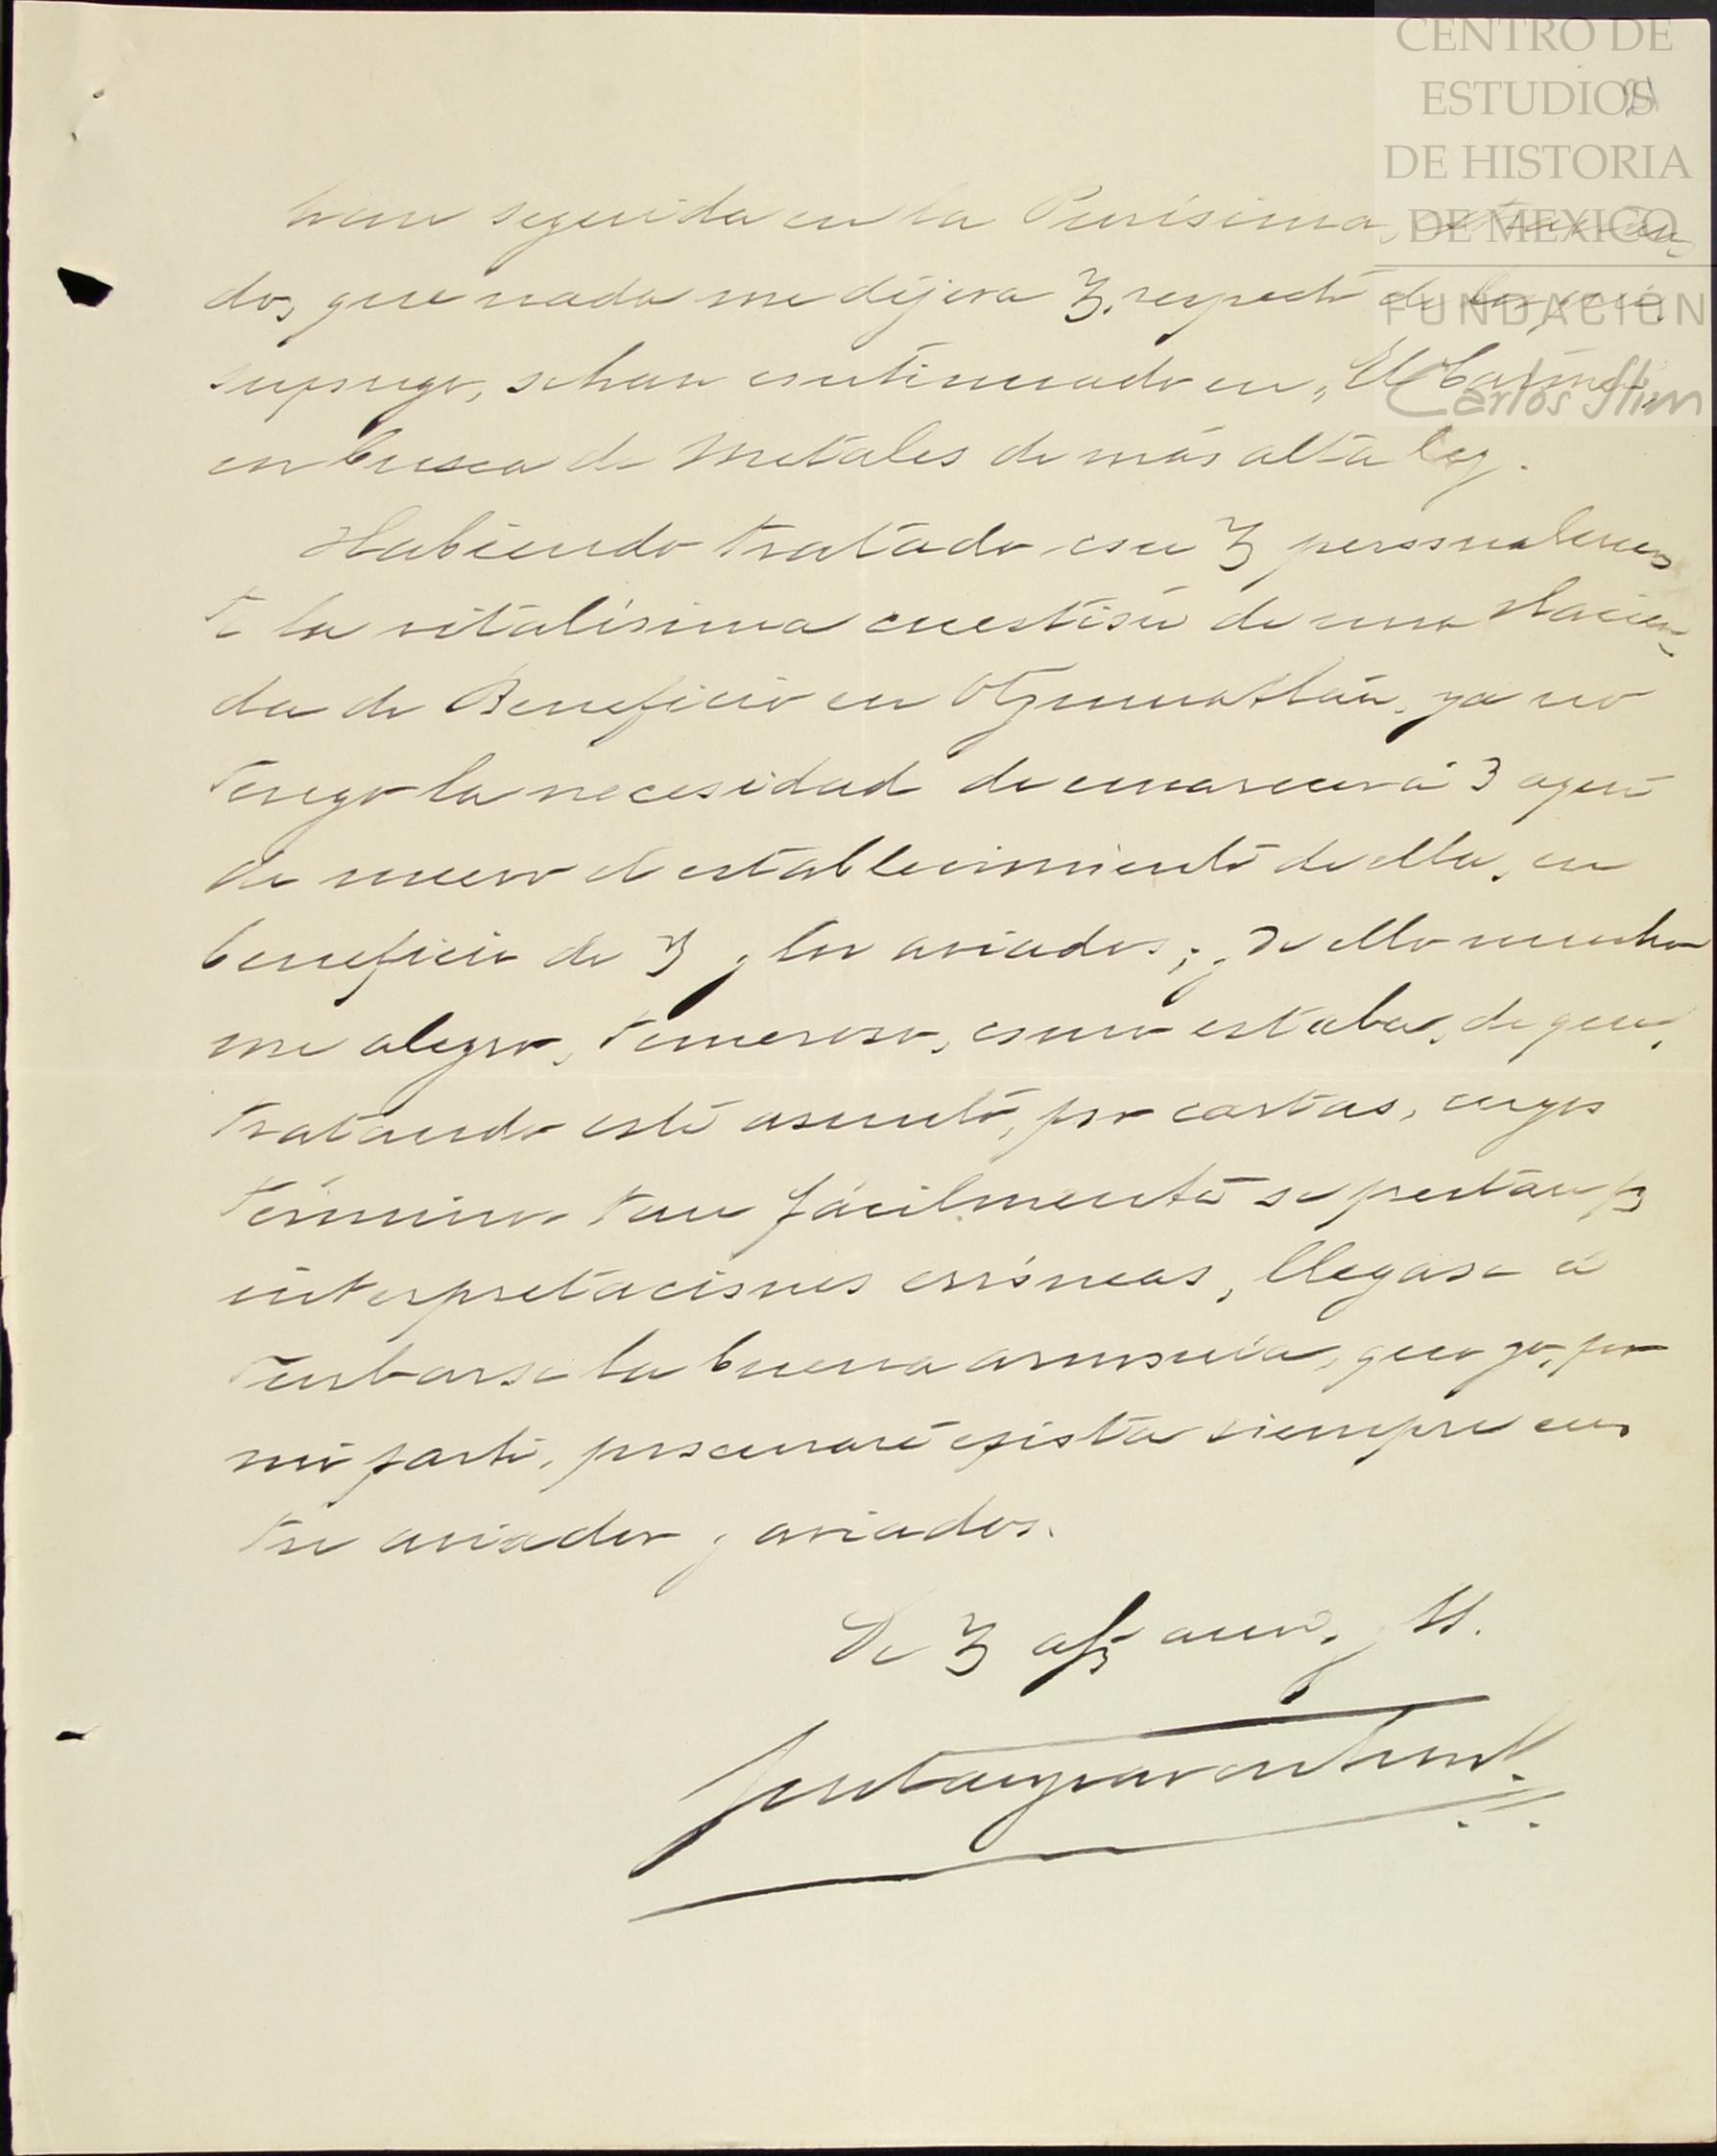 CENTRO DE
ESTUDIOS
DE HISTORIA
DE MEXICO
FUNDACIÓN
Carlos Slim
han seguido en la Purísima,
do, que nada me dijera V. respecto de los que,
supongo, se han continuado en "El Carmen",
en busca de metales de más alta ley.
Habiendo tratado con V personalmen
te la vitalísima cuestión de una Hacien
da de Beneficio en Ozumatlán, ya no
tengo la necesidad de á V aquí
de nuevo el establecimiento de ella, en
beneficio de V y los aviados; y de ello mucho
me alegro, temeroso, como estaba, de que,
tratando este asunto, por cartas, cuyos
términos tan fácilmente se prestan pa
interpretaciones erróneas, llegase á
turbarse la buena armonía, que yo, por
mi parte, procuraré exista siempre en
tre aviador y aviados.
De V afmo amo. y SS.